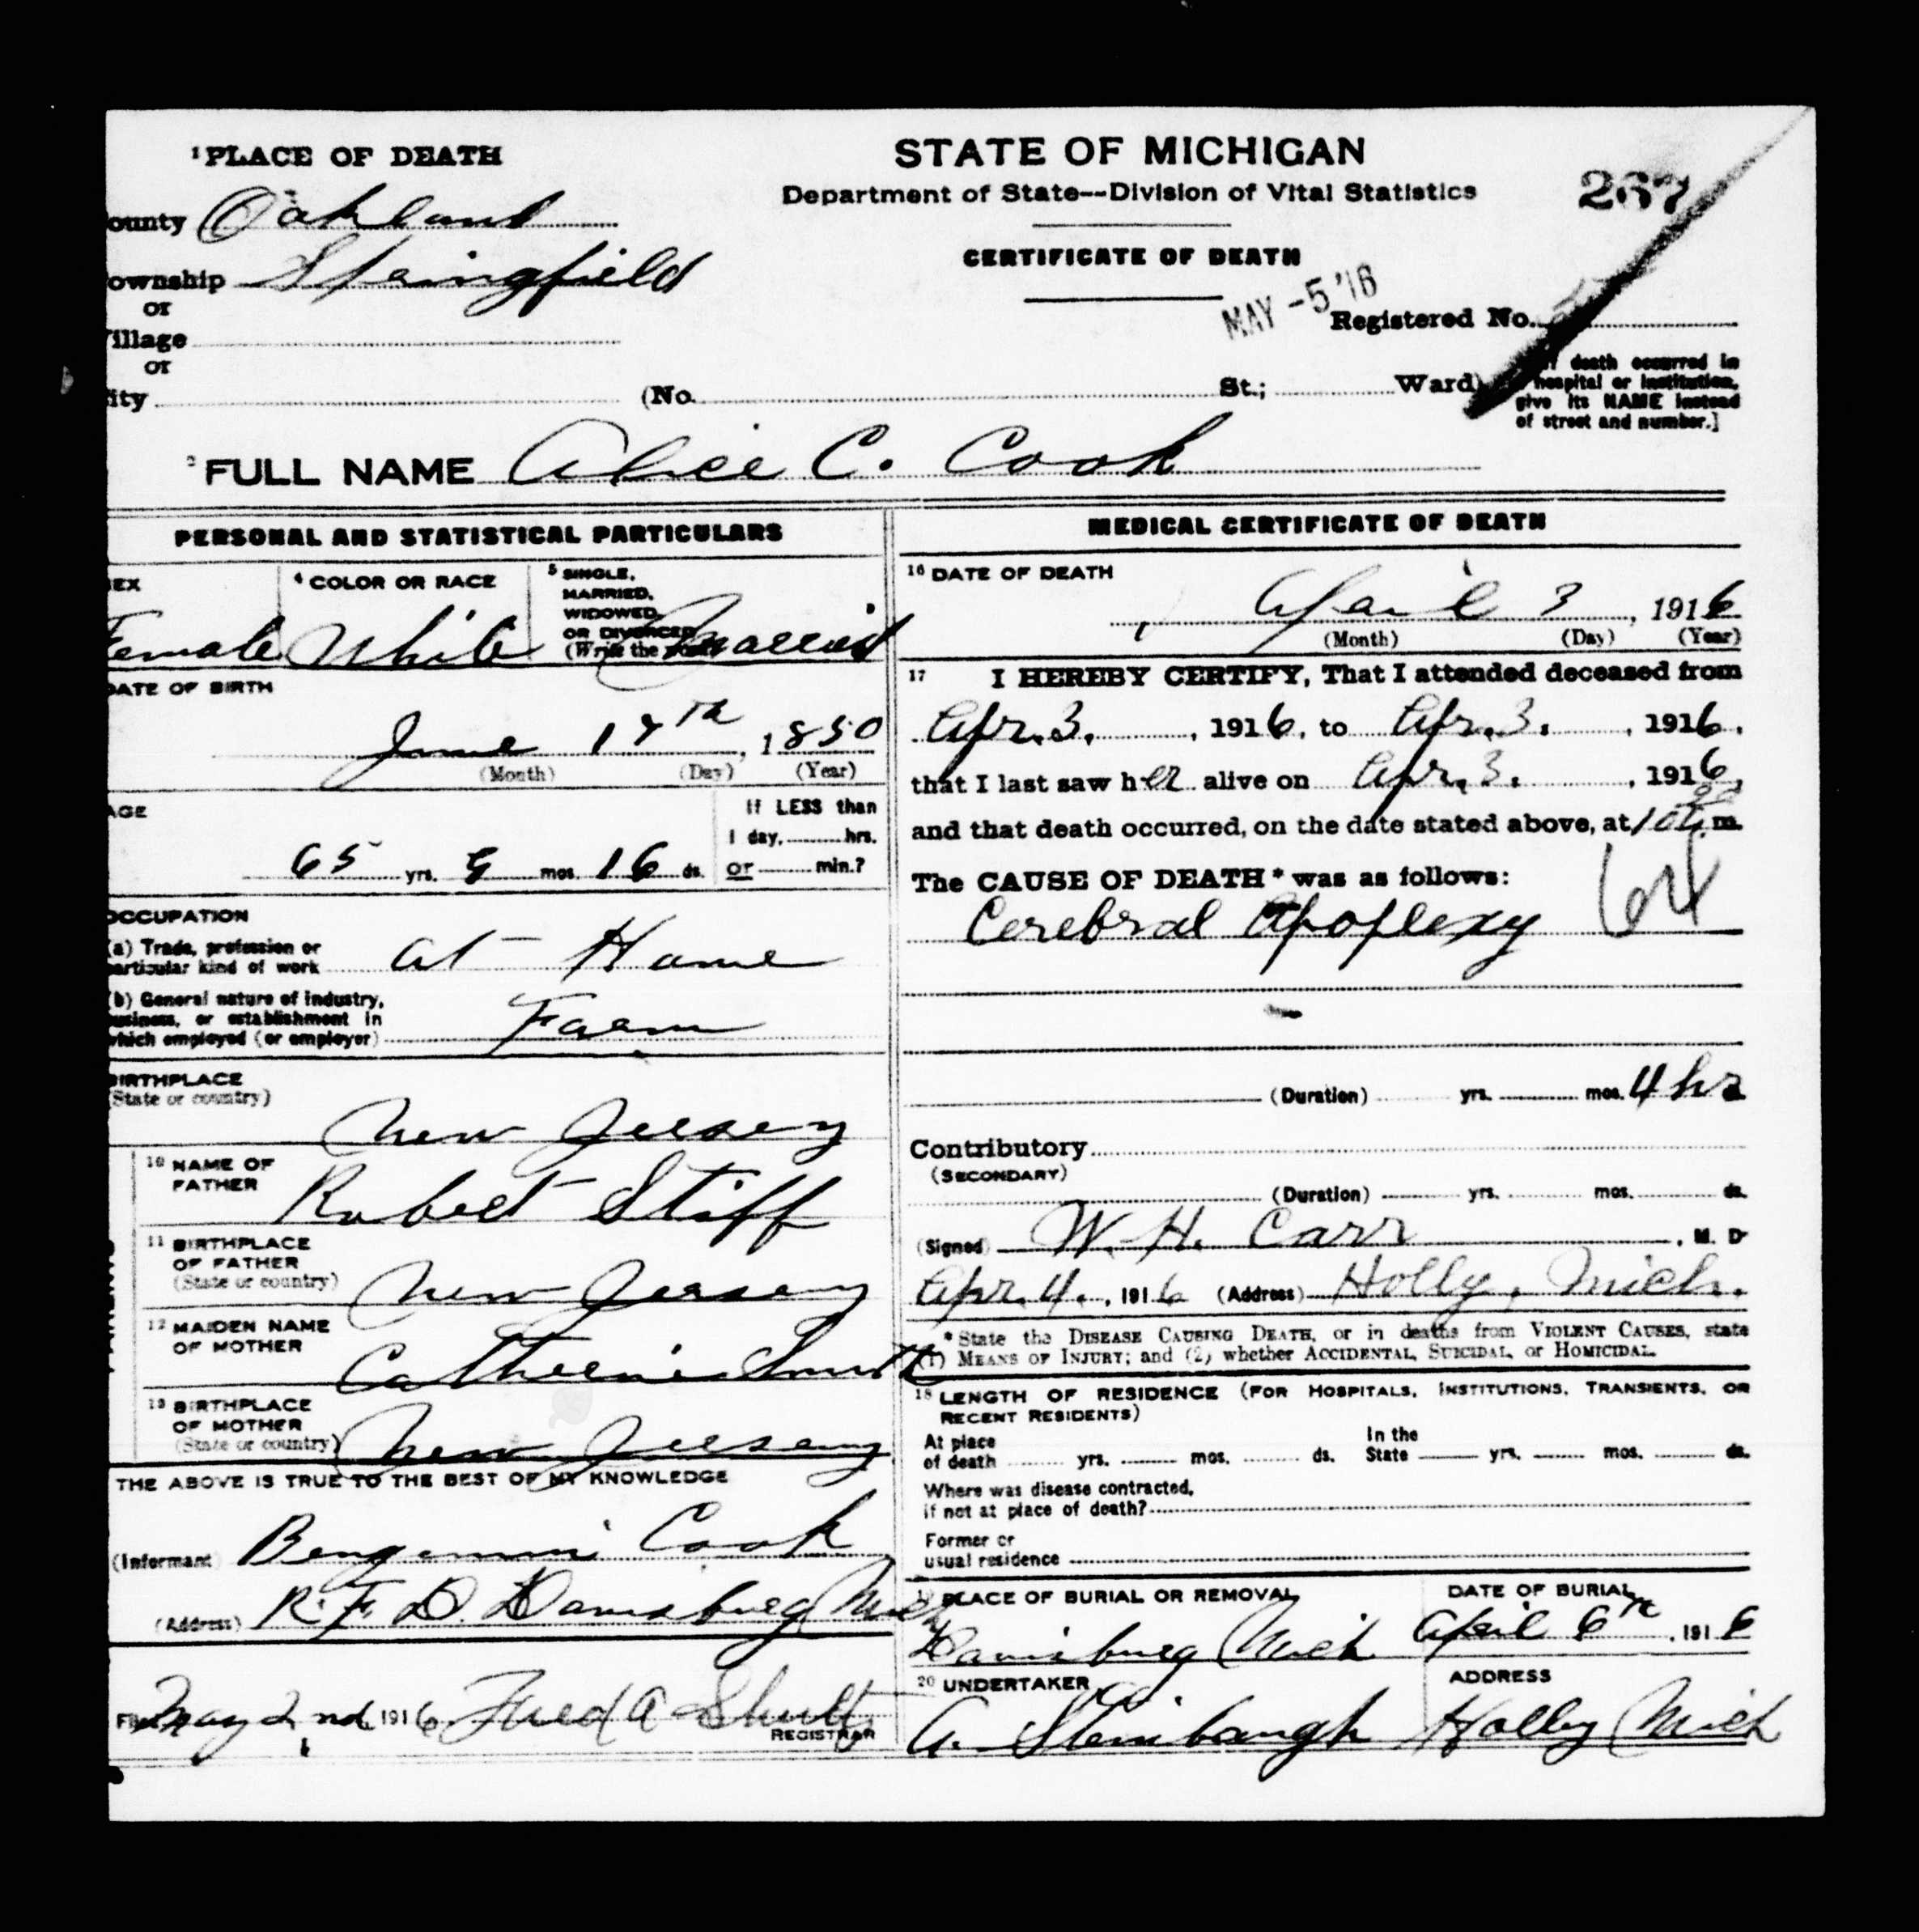 1 PLACE OF DEATH
STATE OF MICHIGAN
Department of State--Division of Vital Statistics
267
ounty Oakland
CERTIFICATE OF DEATH
ownship Springfield
or
illage
MAY -5 '16
Registered No.
or
ity (No. St.; Ward)
death occurred in
hospital or institution,
give its NAME instead
of street and number.]
2 FULL NAME Alice C. Cook
PERSONAL AND STATISTICAL PARTICULARS
EX
Female
4 COLOR OR RACE
White
5 SINGLE,
MARRIED,
WIDOWED
OR DIVORCED
(Write the
Married
DATE OF BIRTH
June th, 1850
(Month) (Day) (Year)
AGE
65 yrs. 9 mos. 16 ds.
If LESS than
1 day, hrs.
or min.?
OCCUPATION
(a) Trade, profession or
particular kind of work at Home
(b) General nature of industry,
business, or establishment in
which employed (or employer) Farm
BIRTHPLACE
(State or country)
New Jersey
10 NAME OF
FATHER
Robert Stiff
11 BIRTHPLACE
OF FATHER
(State or country)
New Jersey
12 MAIDEN NAME
OF MOTHER
Catherine Smith
13 BIRTHPLACE
OF MOTHER
(State or country)
New Jersey
THE ABOVE IS TRUE TO THE BEST OF MY KNOWLEDGE
(Informant) Benjamin Cook
(Address) R.F.D. Davisburg Mich
May 2nd 1916 Fred A Shutt
REGISTRAR
MEDICAL CERTIFICATE OF DEATH
16 DATE OF DEATH
April 3, 1916
(Month) (Day) (Year)
17 I HEREBY CERTIFY, That I attended deceased from
Apr. 3., 1916, to Apr. 3., 1916.
that I last saw her alive on Apr. 3., 1916,
and that death occurred, on the date stated above, at m.
The CAUSE OF DEATH* was as follows:
Cerebral Apoplexy
64
(Duration) yrs. mos. 4 hrs
Contributory
(SECONDARY)
(Duration) yrs. mos. ds.
(Signed) W. H. Carr, M. D
Apr. 4., 1916 (Address) Holly, Mich.
*State the DISEASE CAUSING DEATH, or in deaths from VIOLENT CAUSES, state
(1) MEANS OF INJURY; and (2) whether ACCIDENTAL, SUICIDAL, or HOMICIDAL.
18 LENGTH OF RESIDENCE (FOR HOSPITALS, INSTITUTIONS, TRANSIENTS, OR
RECENT RESIDENTS)
At place
of death yrs. mos. ds.
In the
State yrs. mos. ds.
Where was disease contracted,
if not at place of death?
Former or
usual residence
19 PLACE OF BURIAL OR REMOVAL
Davisburg Mich
DATE OF BURIAL
April 6th, 1916
20 UNDERTAKER
A. Steinbaugh
ADDRESS
Holly Mich